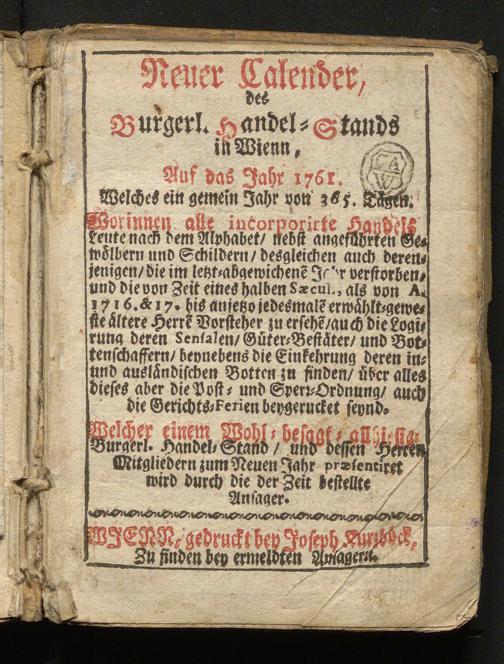 Neuer Calender,
des
Burgerl. Handel-Stands
in Wienn,
Auf das Jahr 1761.
Welches ein gemein Jahr von 365. Tägen.
Worinnen alle incorporirte Handels
Leute nach dem Alphabet/ nebst angeführten Ge-
wölbern und Schildern/ desgleichen auch deren-
jenigen/ die im letzt-abgewichenē Jahr verstorben,
und die von Zeit eines halben Sæcul., als von A.
1716.&17. bis anjetzo jedesmalē erwählt-gewe-
ste ältere Herrē Vorsteher zu ersehē/auch die Logi-
rung deren Sensalen/ Güter-Bestäter/ und Bot-
tenschaffern/ beynebens die Einkehrung deren in-
und ausländischen Botten zu finden/ über alles
dieses aber die Post- und Sperr-Ordnung/ auch
die Gerichts-Ferien beygerucket seynd.
Welcher einem Wohl-besagt-allhiesig-
Burgerl. Handel-Stand/ und dessen Herren
Mitgliedern zum Neuen Jahr præsentiret
wird durch die der Zeit bestellte
Ansager.
WIENN, gedruckt bey Joseph Kurzböck,
Zu finden bey ermeldten Ansagern.